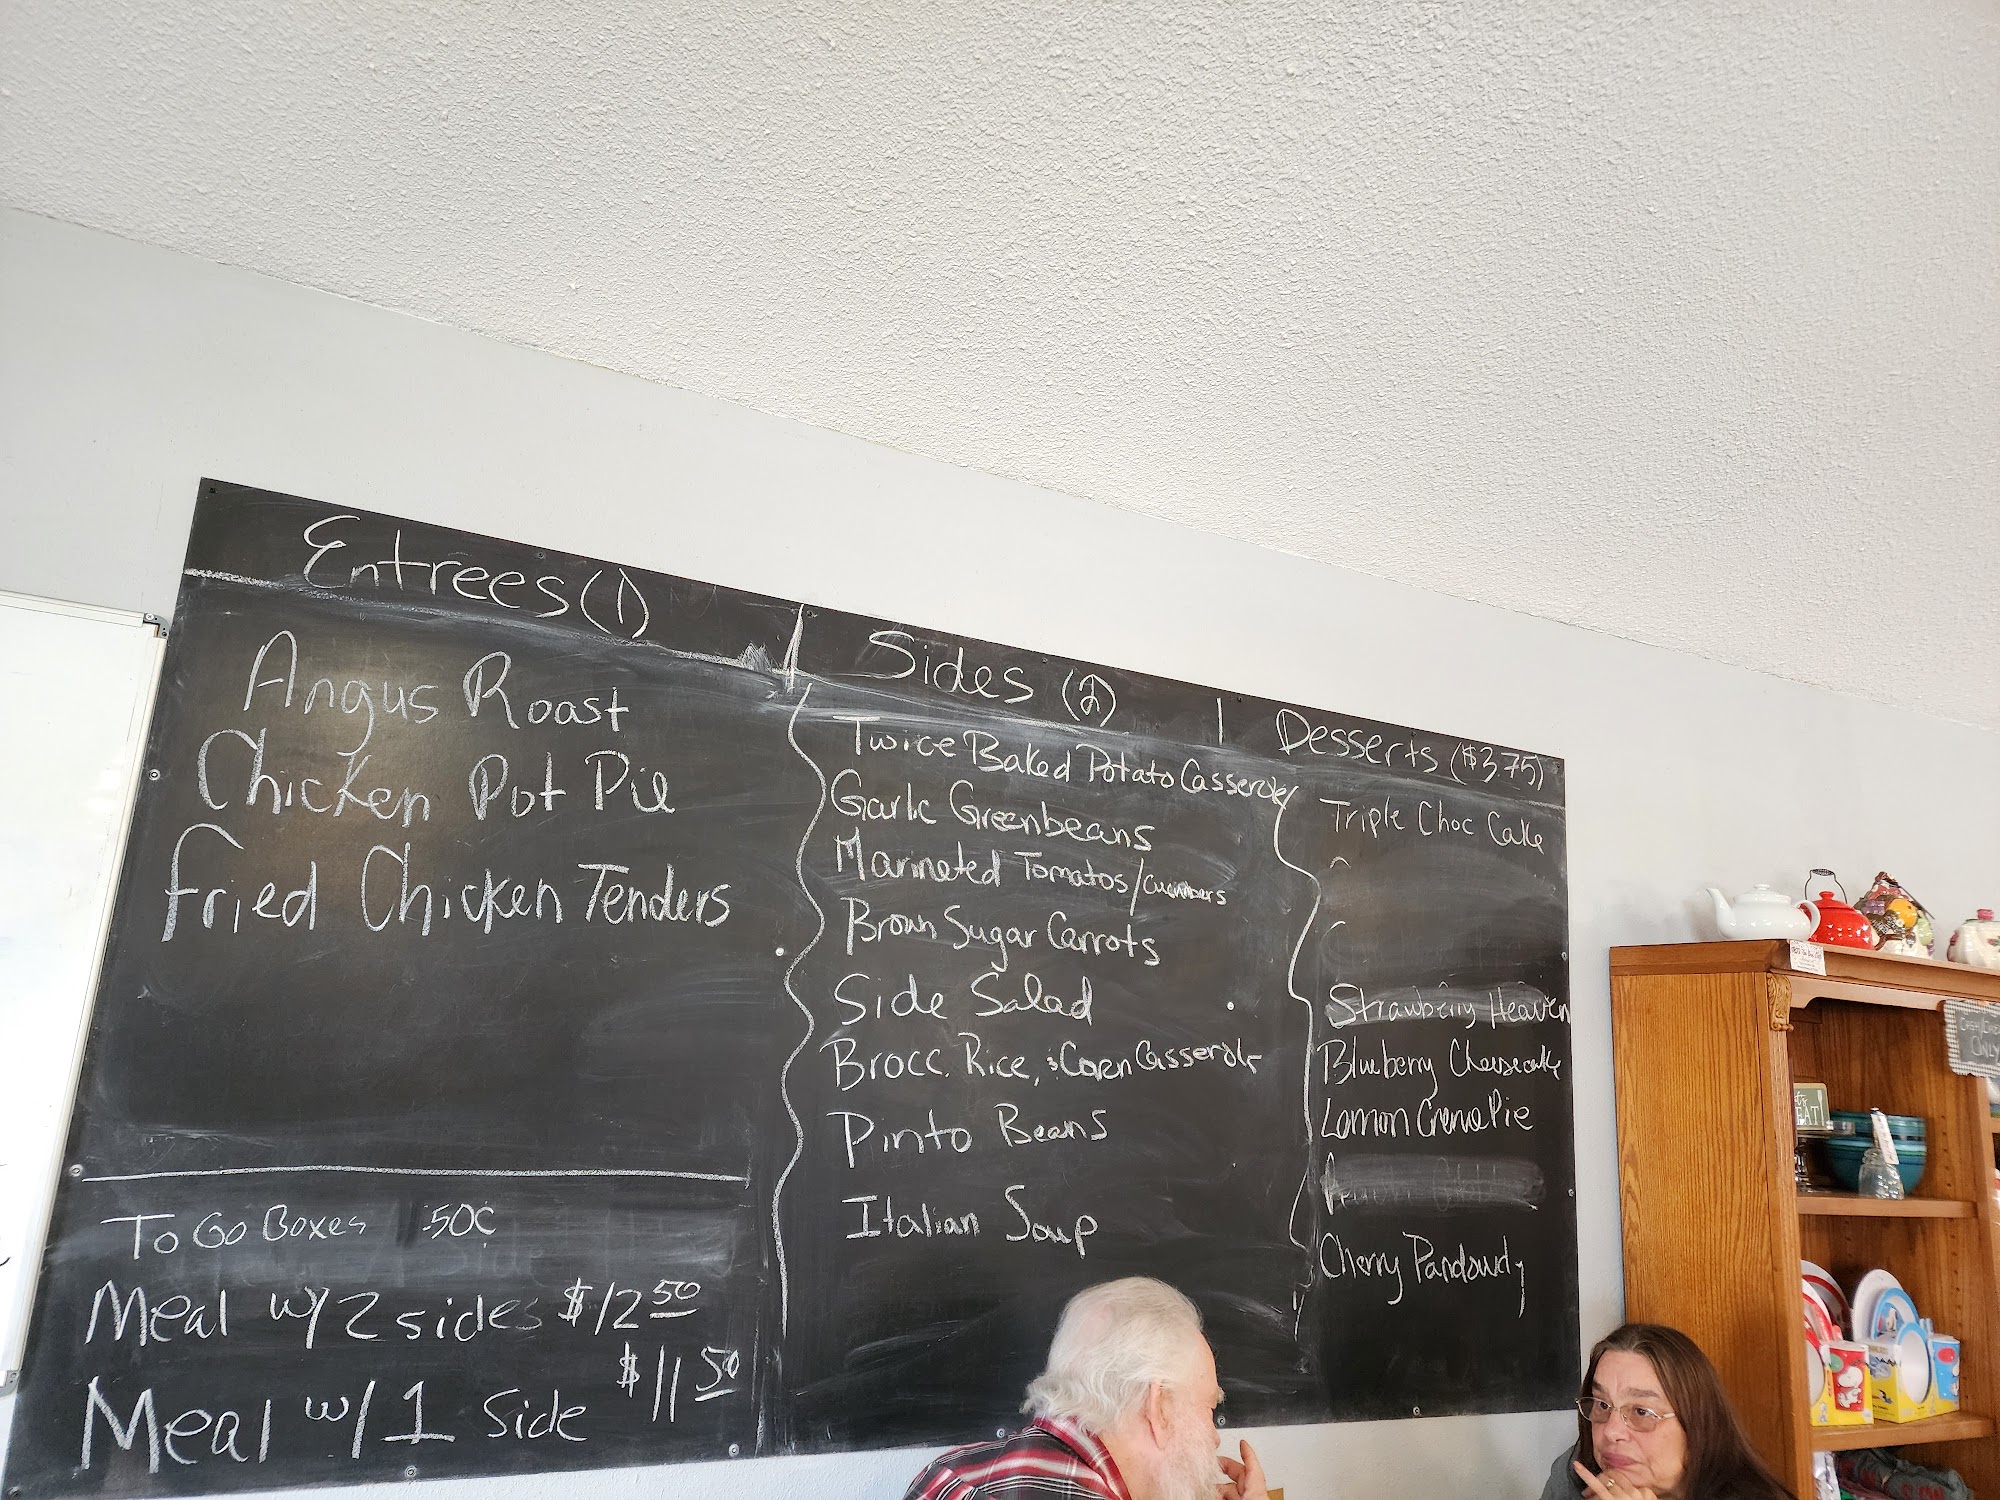 Entrees (1)
Angus Roast
Chicken Pot Pie
Fried Chicken Tenders
To Go Boxes .50¢
Meal w/ 2 sides $12.50
Meal w/ 1 Side $11.50
Sides (2)
Twice Baked Potato Casserole
Garlic Greenbeans
Marineted Tomatos/cucumbers
Brown Sugar Carrots
Side Salad
Brocc. Rice, & Corn Casserole
Pinto Beans
Italian Soup
Desserts ($3.75)
Triple Choc Cake
Strawberry Heaven
Blueberry Cheesecake
Lemon Creme Pie
Cherry Pandowdy
ONLY
EAT